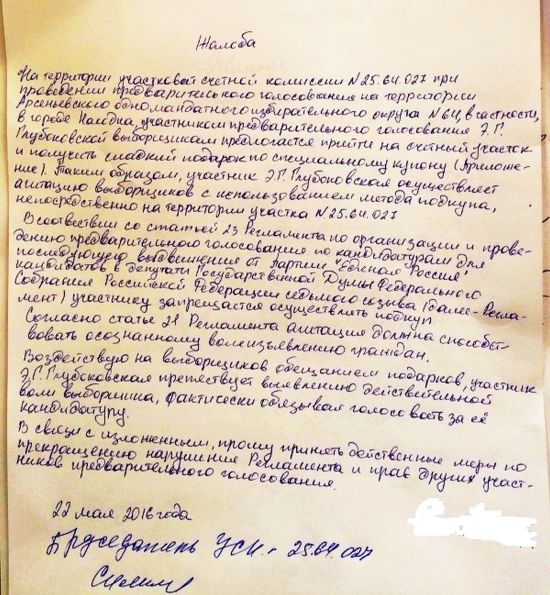 Жалоба
На территории участковой счетной комиссии №25.64.027 при
проведении предварительного голосования на территории
Арсеньевского одномандатного избирательного округа №64, в частности,
в городе Находка, участником предварительного голосования Э.Г.
Глубоковской выборщикам предлагается прийти на счетный участок
и получить сладкий подарок по специальному купону (Приложе-
ние). Таким образом, участник Э.Г. Глубоковская осуществляет
агитацию выборщиков с использованием метода подкупа,
непосредственно на территории участка №25.64.027
В соответствии со статьей 23 Регламента по организации и прове-
дению предварительного голосования по кандидатурам для
последующего выдвижения от Партии "Единая Россия"
кандидатов в депутаты Государственной Думы Федерального
Собрания Российской Федерации седьмого созыва (далее-Регла-
мент) участнику запрещается осуществлять подкуп.
Согласно статье 21 Регламента агитация должна способст-
вовать осознанному волеизъявлению граждан.
Воздействуя на выборщиков обещанием подарков, участник
Э.Г. Глубоковская препятствует выявлению действительной
воли выборщика, фактически обязывая голосовать за её
кандидатуру.
В связи с изложенным, прошу принять действенные меры по
прекращению нарушения Регламента и прав других участ-
ников предварительного голосования.
22 мая 2016 года
Председатель УСК - 25.64.027